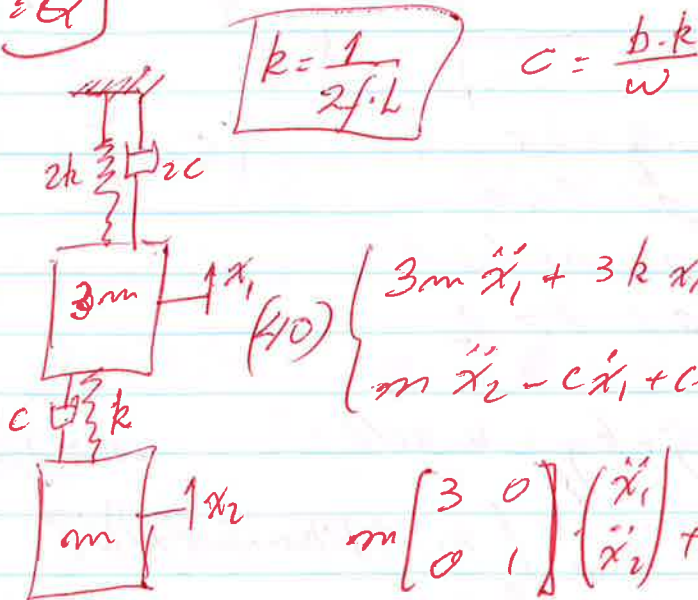 k = 1/2f·L
c = b·k/w
2k 2c
3m x₁
(40) { 3m ẍ₁ + 3k x₁
m ẍ₂ - c ẋ₁ + c
c k
m x₂
m [3 0; 0 1] · (ẍ₁; ẍ₂) +